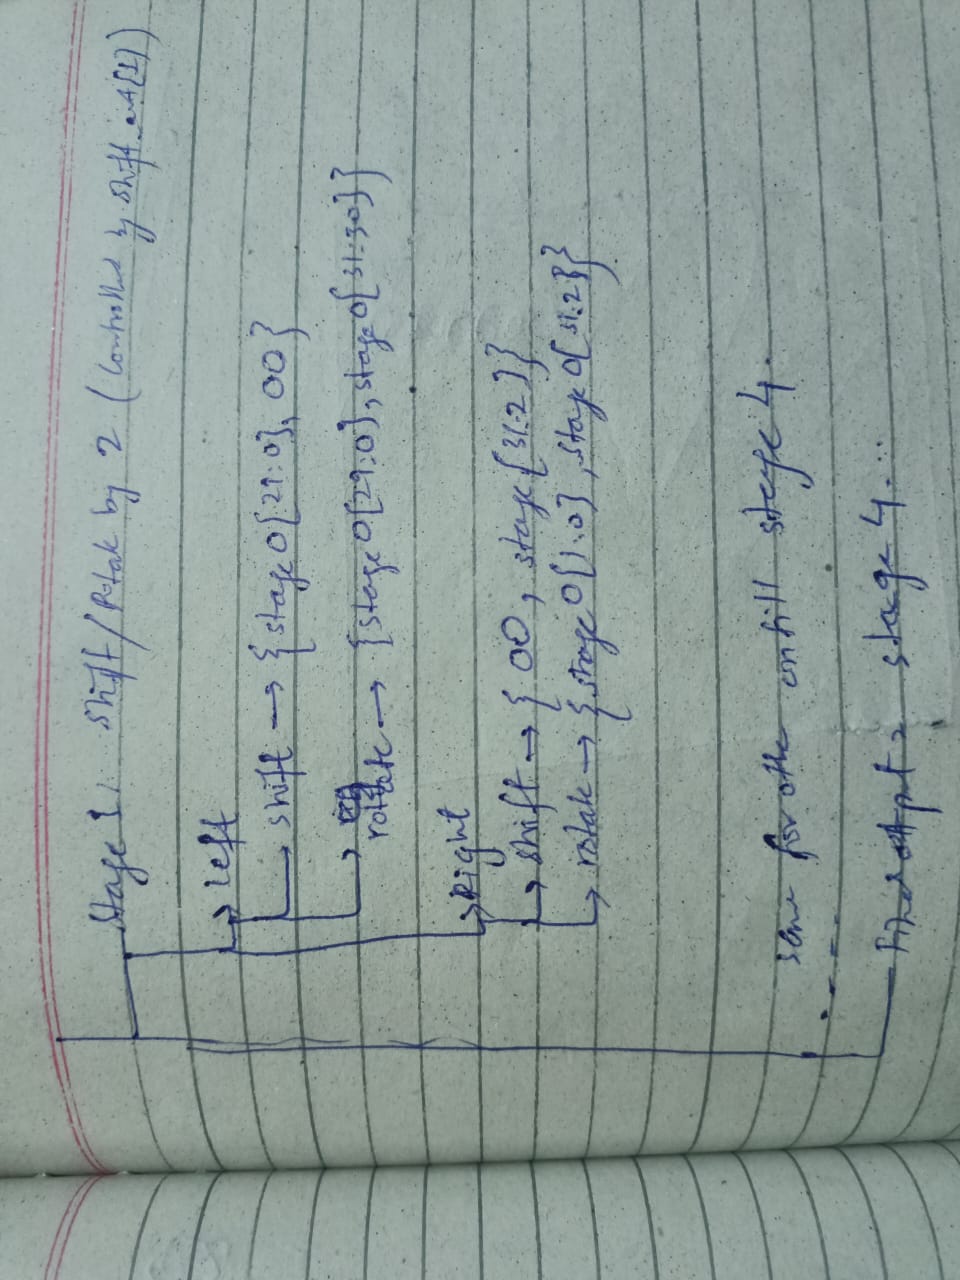 Stage 1... shift/Rotate by 2 (Controlled by shift_amt[1])
→ Left
→ shift → {stage 0[29:0], 00}
→ rotate → {stage 0[29:0], stage 0[31:30]}
→ Right
→ shift → {00, stage[31:2]}
→ rotate → {stage 0[1:0], stage 0[31:2]}
same for othe untill stage 4.
Final output = stage 4...